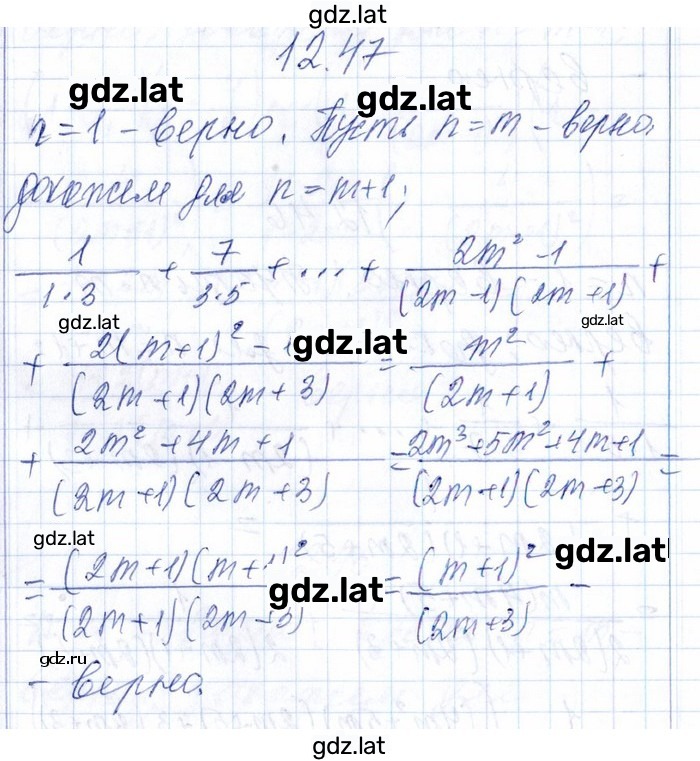 gdz.lat
12.47
gdz.lat gdz.lat
n=1 – верно. Пусть n=m – верно.
докажем для n=m+1;
1/(1·3) + 7/(3·5) + ... + (2m²-1)/((2m-1)(2m+1)) +
gdz.lat gdz.lat gdz.lat
+ (2(m+1)²-1)/((2m+1)(2m+3)) = m²/(2m+1) +
+ (2m²+4m+1)/((2m+1)(2m+3)) = (2m³+5m²+4m+1)/((2m+1)(2m+3)) =
gdz.lat gdz.lat
= ((2m+1)(m+1)²)/((2m+1)(2m+3)) = (m+1)²/(2m+3) –
gdz.lat
gdz.ru
– верно.
gdz.lat